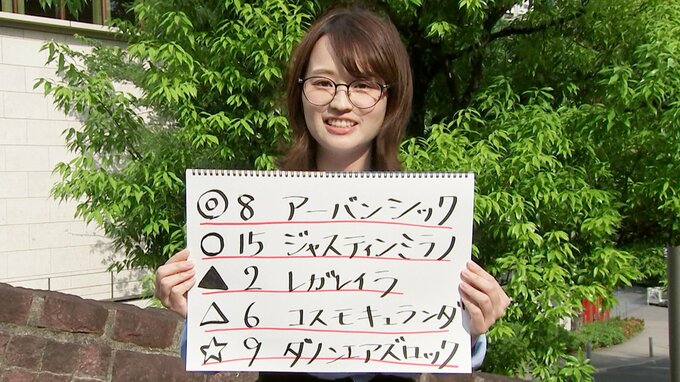 ◎8 アーバンシック
○15 ジャスティンミラノ
▲2 レガレイラ
△6 コスモキュランダ
☆9 ダノンエアズロック